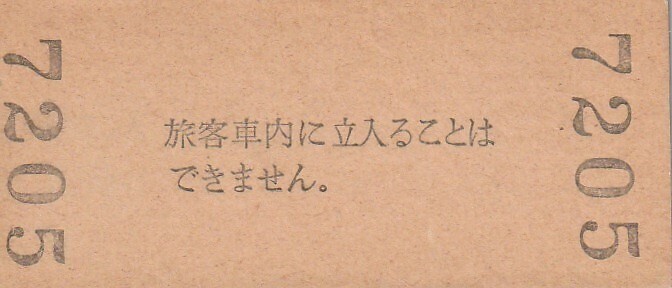 7205
旅客車内に立入ることは
できません。
7205